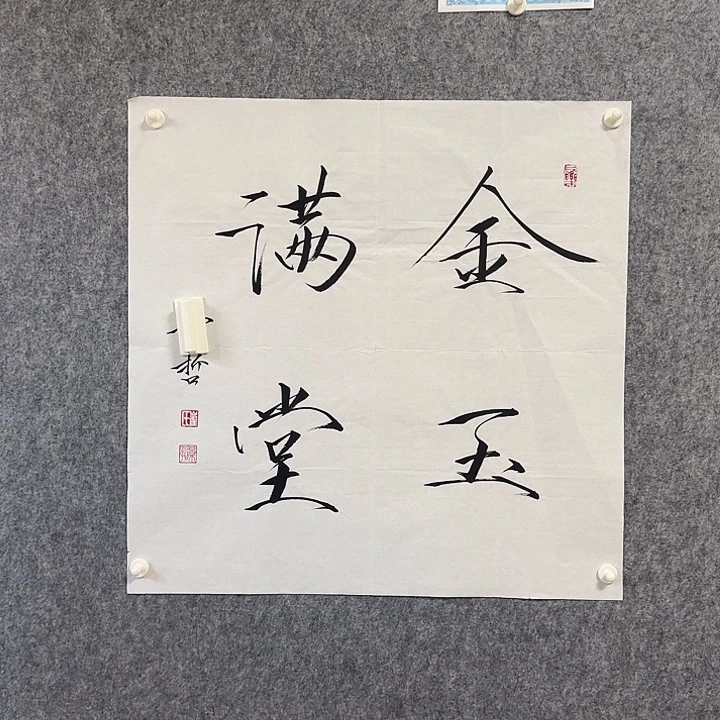 金玉
满堂
哲